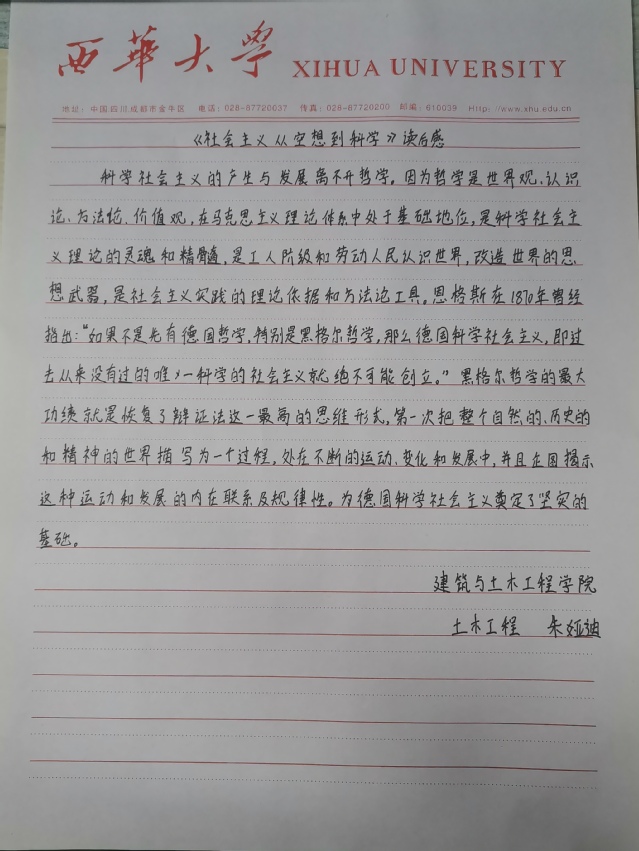 西華大學 XIHUA UNIVERSITY
地址：中国四川成都市金牛区 电话：028-87720037 传真：028-87720200 邮编：610039 Http：//www.xhu.edu.cn
《社会主义从空想到科学》读后感
科学社会主义的产生与发展离不开哲学。因为哲学是世界观、认识
论、方法论、价值观，在马克思主义理论体系中处于基础地位，是科学社会主
义理论的灵魂和精髓，是工人阶级和劳动人民认识世界，改造世界的思
想武器，是社会主义实践的理论依据和方法论工具。恩格斯在1870年曾经
指出：“如果不是先有德国哲学，特别是黑格尔哲学，那么德国科学社会主义，即过
去从来没有过的唯一科学的社会主义就绝不可能创立。”黑格尔哲学的最大
功绩就是恢复了辩证法这一最高的思维形式，第一次把整个自然的、历史的
和精神的世界描写为一个过程，处在不断的运动、变化和发展中，并且企图揭示
这种运动和发展的内在联系及规律性。为德国科学社会主义奠定了坚实的
基础。
建筑与土木工程学院
土木工程 朱娅迪